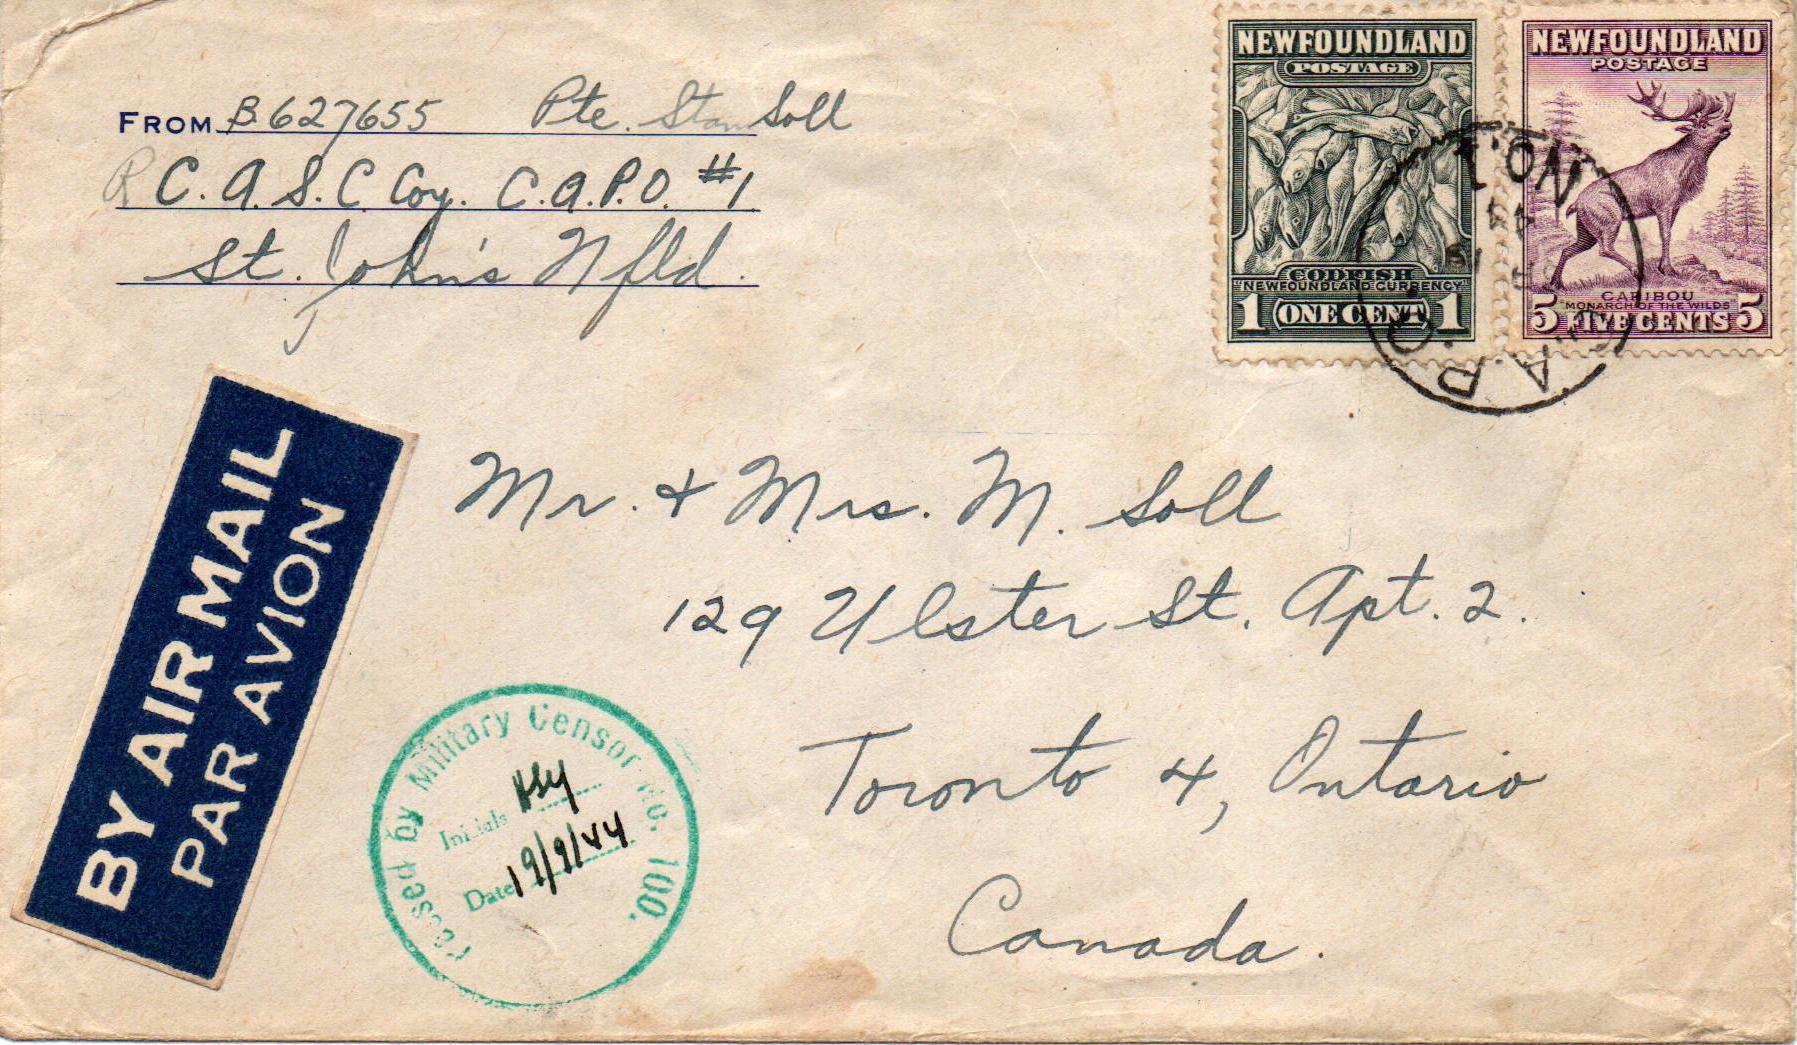 FROM B627655 Pte. Stan Soll
R C. A. S. C Coy. C.A.P.O. #1
St. John's Nfld.
NEWFOUNDLAND
POSTAGE
CODFISH
"NEWFOUNDLAND CURRENCY"
1 ONE CENT 1
NEWFOUNDLAND
POSTAGE
CARIBOU
MONARCH OF THE WILDS
5 FIVE CENTS 5
NO. 1
44
A.P.O.
BY AIR MAIL
PAR AVION
Mr. + Mrs. M. Soll
129 Ulster St. Apt. 2.
Toronto 4, Ontario
Canada.
Passed by Military Censor No. 100.
Initials
Date 19/9/44